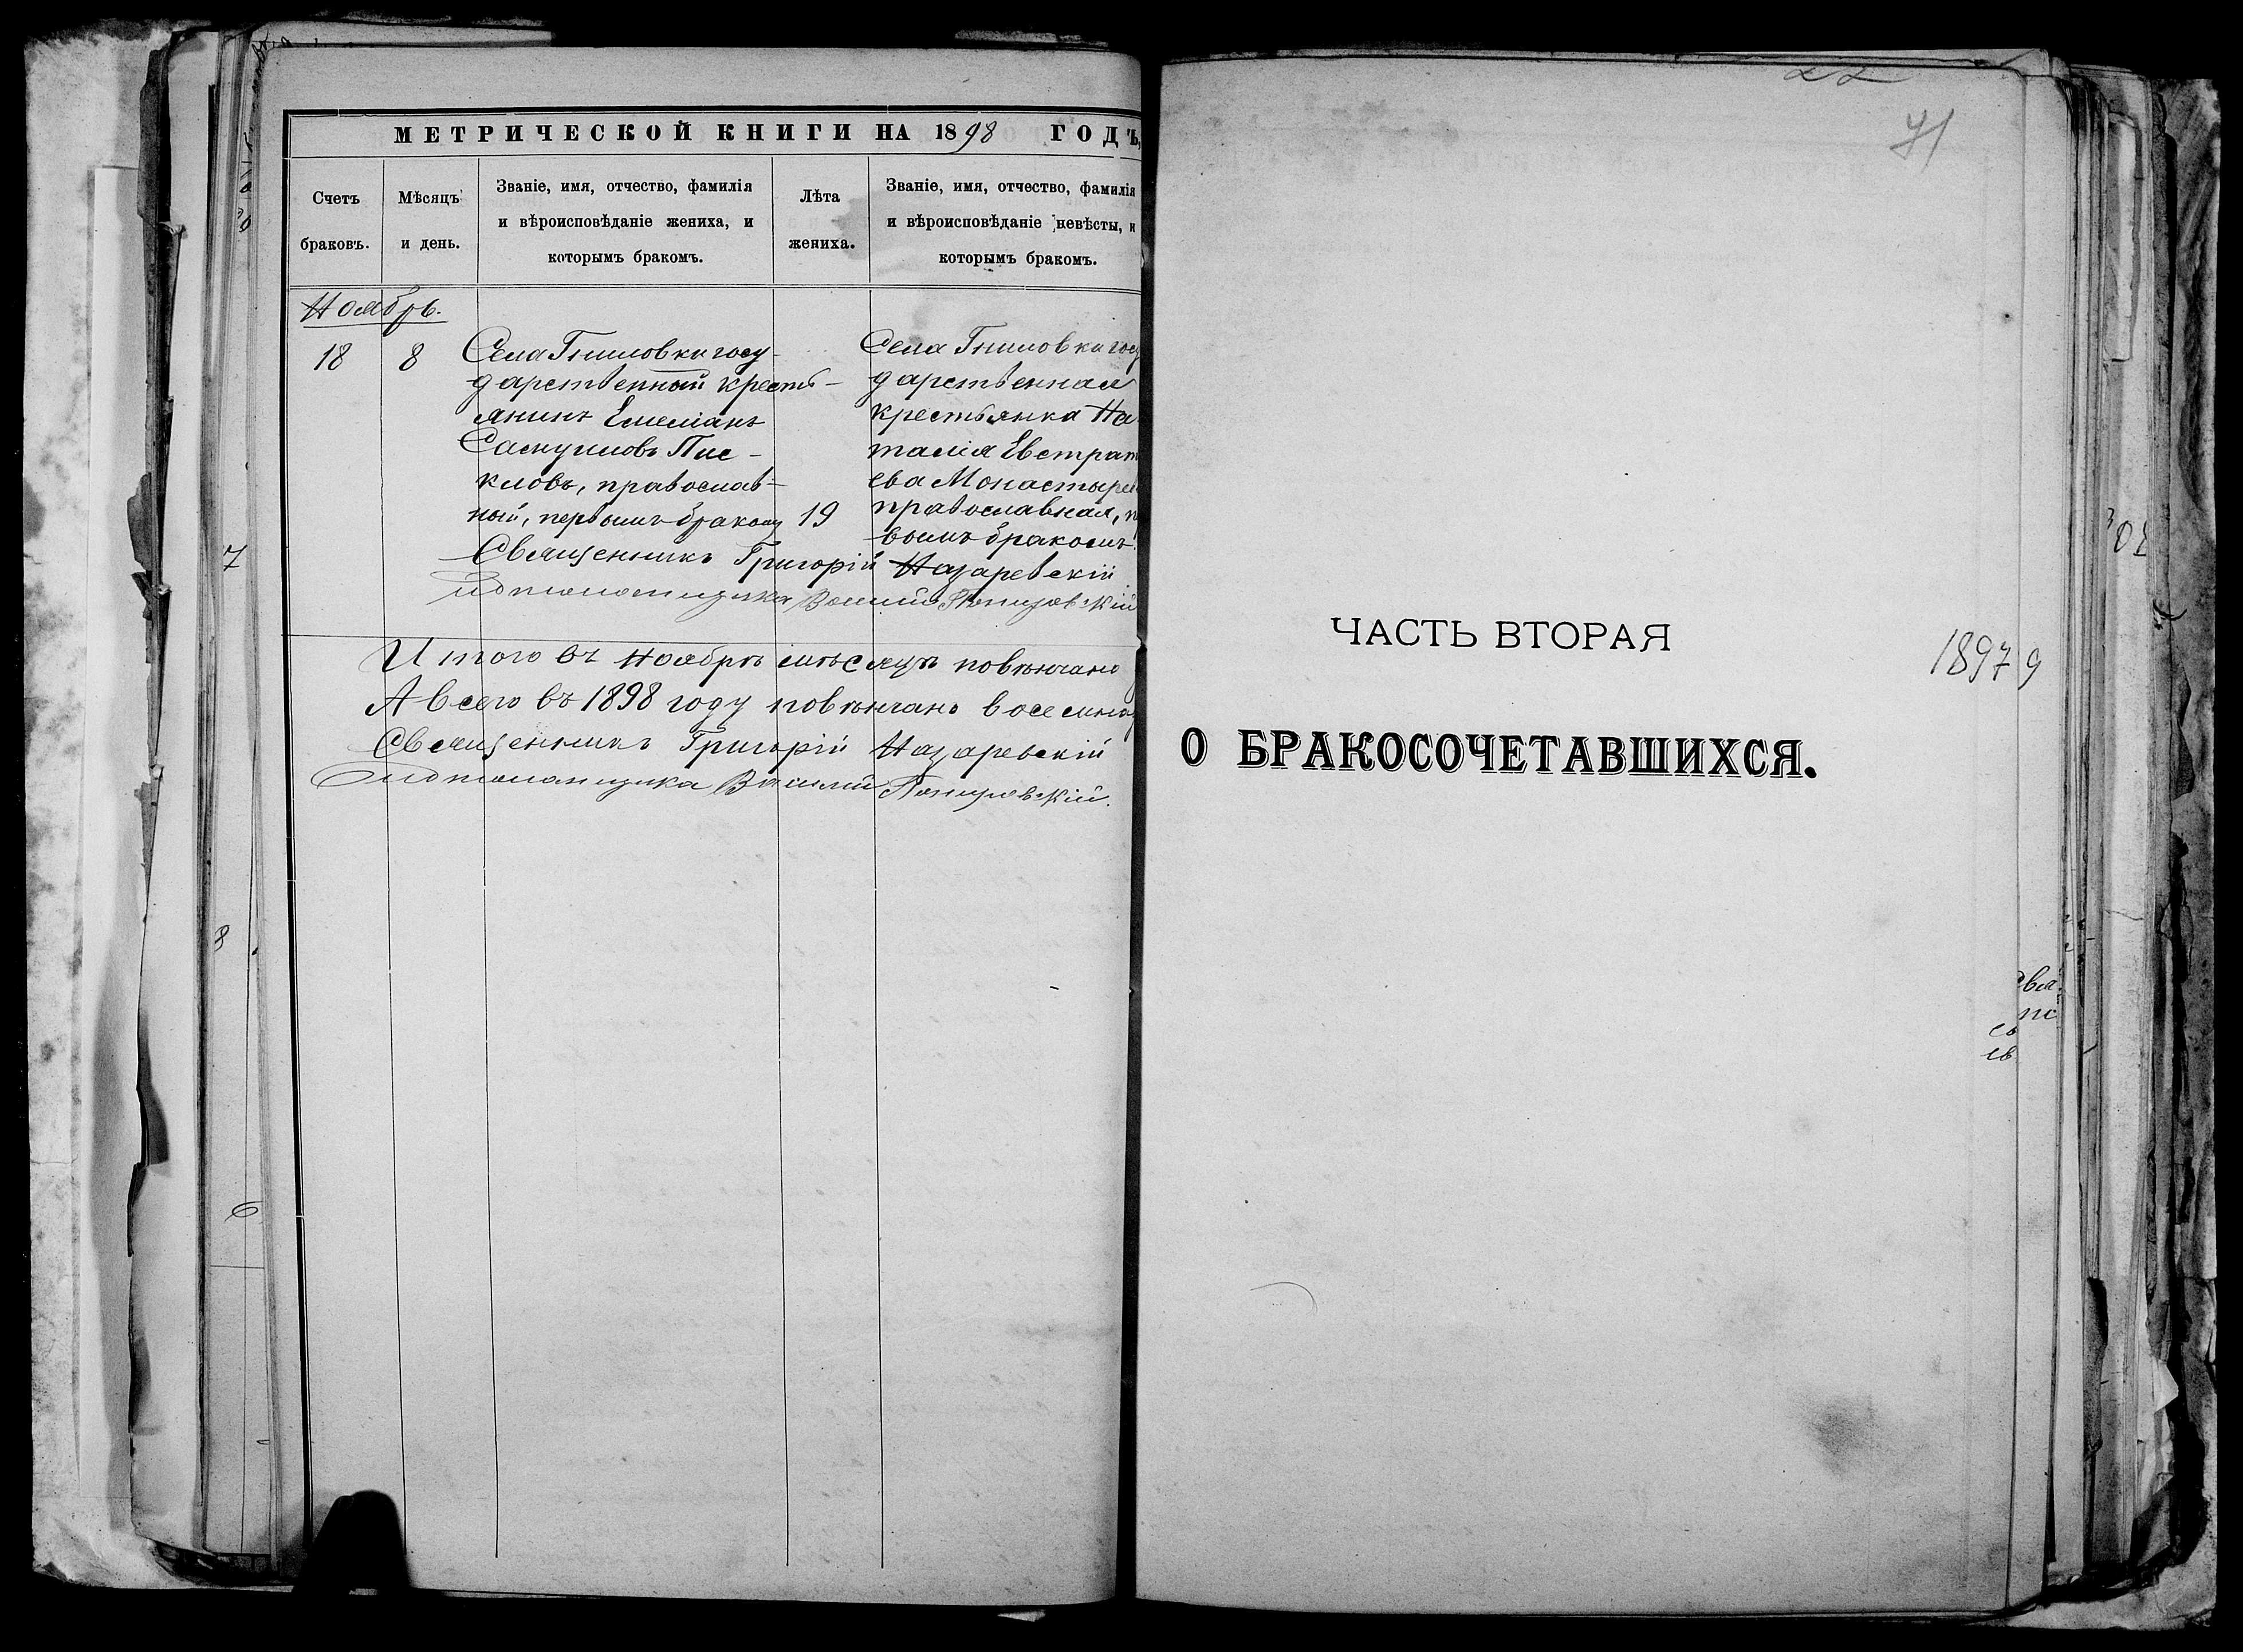 МЕТРИЧЕСКОЙ КНИГИ НА 1898 ГОДЪ,
Счетъ браковъ.
Мѣсяцъ и день.
Званіе, имя, отчество, фамилія
и вѣроисповѣданіе жениха, и
которымъ бракомъ.
Лѣта жениха.
Званіе, имя, отчество, фамилія
и вѣроисповѣданіе невѣсты, и
которымъ бракомъ.
Ноябрь.
18
8
Села Гниловки госу-
дарственный кресть-
янинъ Емеліанъ
Самуиловъ Пис-
кловъ, православ-
ный, первымъ бракомъ
19
Села Гниловки госу
дарственная
крестьянка На
талія Евстрат
ева Монастырс
православная, п
вымъ бракомъ.
Священникъ Григорій Назаревскій
Василій
Итого въ Ноябрѣ мѣсяцѣ повѣнчано
А всего въ 1898 году повѣнчано восемнад
Священникъ Григорій Назаревскій
Василій
22
71
ЧАСТЬ ВТОРАЯ
1897
9
О БРАКОСОЧЕТАВШИХСЯ.
7
8
6